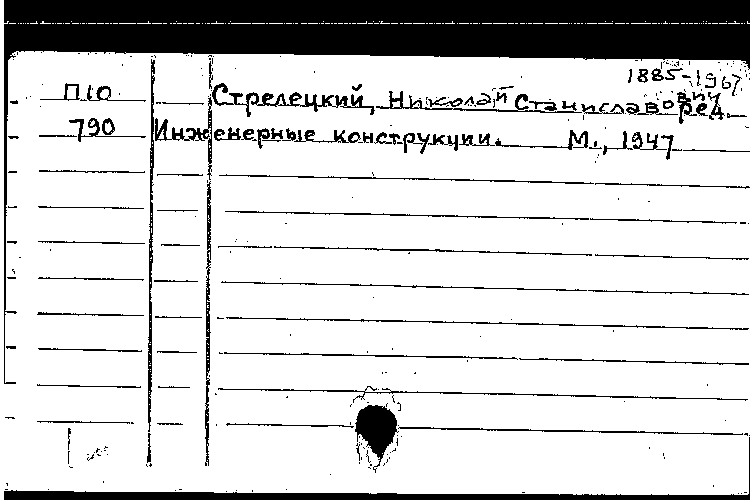 1885-1967
П10 Стрелецкий, Николай Станиславович ред.
790 Инженерные конструкции. М., 1947